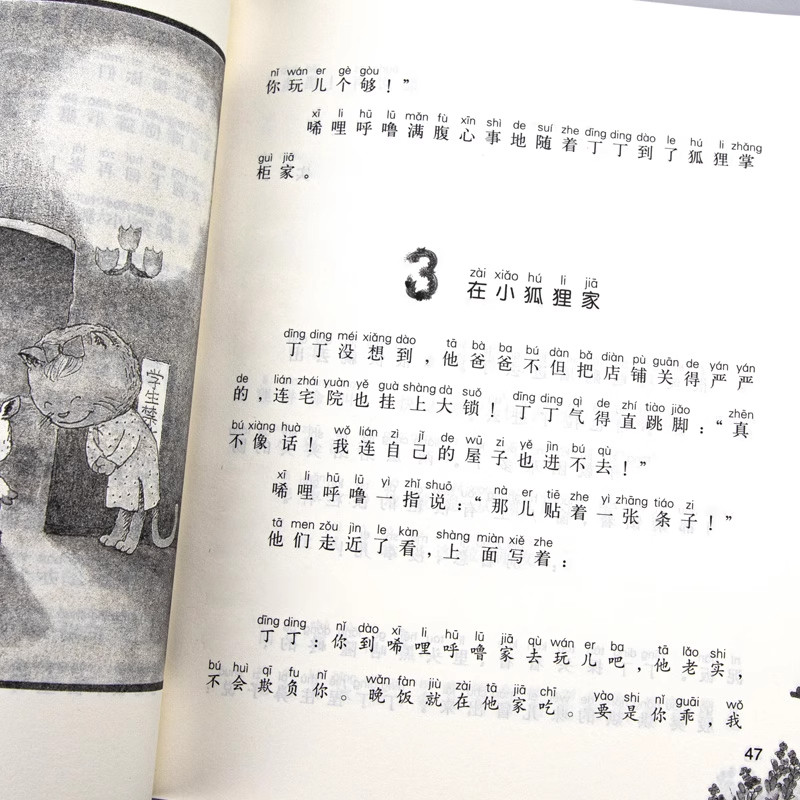 学生禁
nǐ wán er gè gòu
你玩儿个够！”
xī li hū lū mǎn fù xīn shì de suí zhe dīng ding dào le hú li zhǎng
唏哩呼噜满腹心事地随着丁丁到了狐狸掌
guì jiā
柜家。
3
zài xiǎo hú li jiā
在小狐狸家
dīng ding méi xiǎng dào tā bà ba bú dàn bǎ diàn pù guān de yán yán
丁丁没想到，他爸爸不但把店铺关得严严
de lián zhái yuàn yě guà shàng dà suǒ dīng ding qì de zhí tiào jiǎo zhēn
的，连宅院也挂上大锁！丁丁气得直跳脚：“真
bú xiàng huà wǒ lián zì jǐ de wū zi yě jìn bú qù
不像话！我连自己的屋子也进不去！”
xī li hū lū yì zhǐ shuō nà er tiē zhe yì zhāng tiáo zi
唏哩呼噜一指说：“那儿贴着一张条子！”
tā men zǒu jìn le kàn shàng miàn xiě zhe
他们走近了看，上面写着：
dīng ding nǐ dào xī li hū lū jiā qù wán er ba tā lǎo shi
丁丁：你到唏哩呼噜家去玩儿吧，他老实，
bú huì qī fu nǐ wǎn fàn jiù zài tā jiā chī yào shi nǐ guāi wǒ
不会欺负你。晚饭就在他家吃。要是你乖，我
47